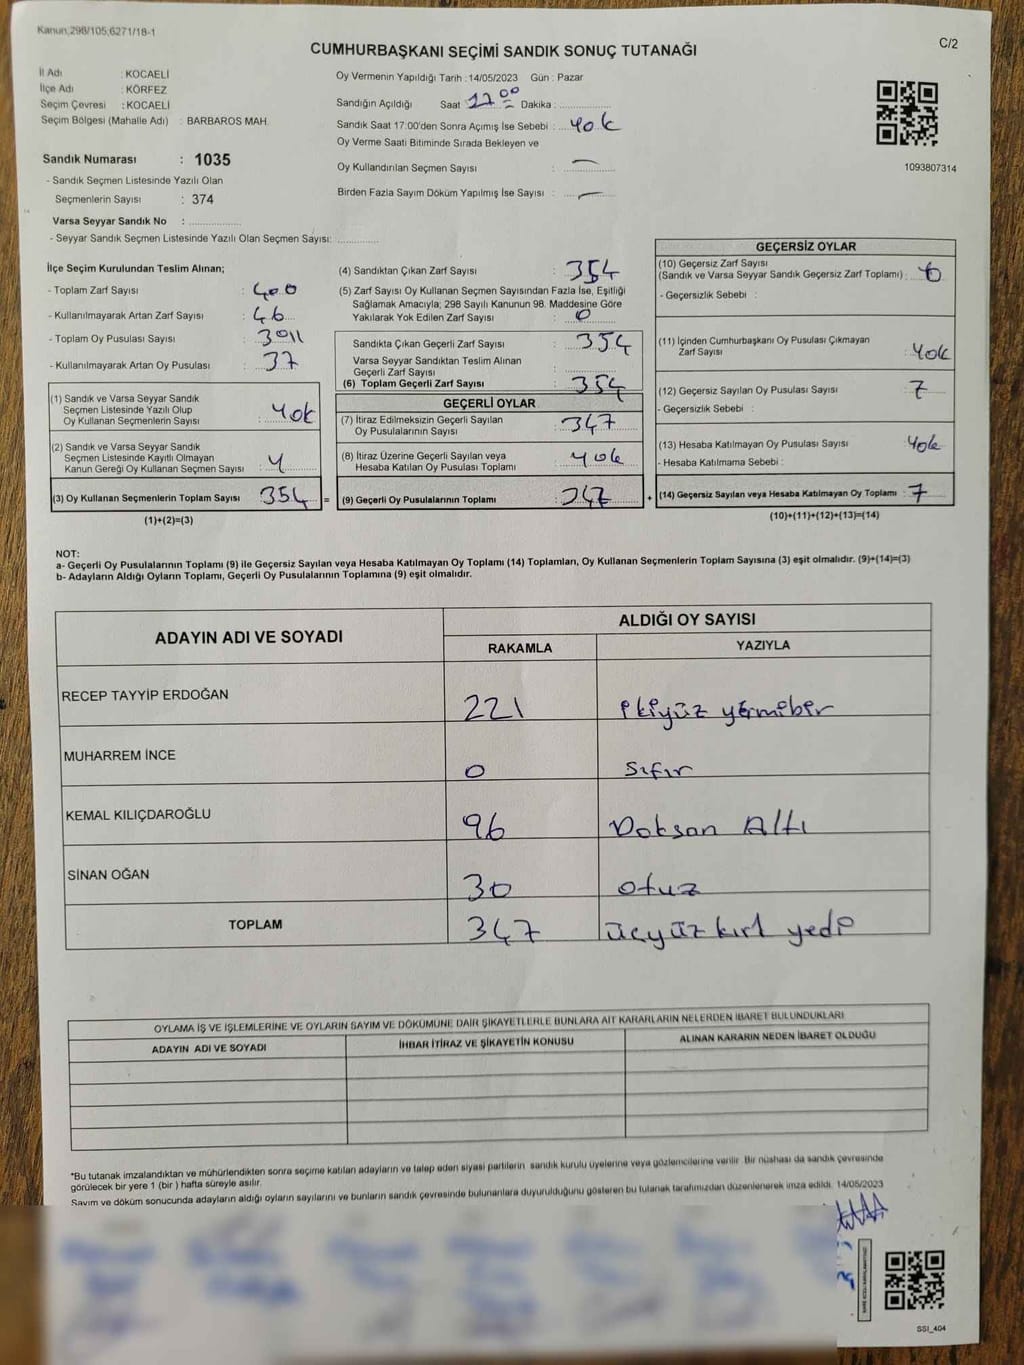 Kanun,298/105;6271/18-1
C/2
CUMHURBAŞKANI SEÇİMİ SANDIK SONUÇ TUTANAĞI
İl Adı : KOCAELİ
İlçe Adı : KÖRFEZ
Seçim Çevresi : KOCAELİ
Seçim Bölgesi (Mahalle Adı) : BARBAROS MAH.
Sandık Numarası : 1035
- Sandık Seçmen Listesinde Yazılı Olan
Seçmenlerin Sayısı : 374
Varsa Seyyar Sandık No : ................
- Seyyar Sandık Seçmen Listesinde Yazılı Olan Seçmen Sayısı: ............
Oy Vermenin Yapıldığı Tarih : 14/05/2023 Gün : Pazar
Sandığın Açıldığı Saat 17 00 Dakika : ................
Sandık Saat 17:00'den Sonra Açımış İse Sebebi : yok
Oy Verme Saati Bitiminde Sırada Bekleyen ve
Oy Kullandırılan Seçmen Sayısı : —
Birden Fazla Sayım Döküm Yapılmış İse Sayısı : —
1093807314
İlçe Seçim Kurulundan Teslim Alınan;
- Toplam Zarf Sayısı : 400
- Kullanılmayarak Artan Zarf Sayısı : 46
- Toplam Oy Pusulası Sayısı :
- Kullanılmayarak Artan Oy Pusulası : 37
(1) Sandık ve Varsa Seyyar Sandık
Seçmen Listesinde Yazılı Olup
Oy Kullanan Seçmenlerin Sayısı : yok
(2) Sandık ve Varsa Seyyar Sandık
Seçmen Listesinde Kayıtlı Olmayan
Kanun Gereği Oy Kullanan Seçmen Sayısı :
(3) Oy Kullanan Seçmenlerin Toplam Sayısı : 354 =
(1)+(2)=(3)
(4) Sandıktan Çıkan Zarf Sayısı : 354
(5) Zarf Sayısı Oy Kullanan Seçmen Sayısından Fazla İse, Eşitliği
Sağlamak Amacıyla; 298 Sayılı Kanunun 98. Maddesine Göre
Yakılarak Yok Edilen Zarf Sayısı : 0
Sandıkta Çıkan Geçerli Zarf Sayısı : 354
Varsa Seyyar Sandıktan Teslim Alınan
Geçerli Zarf Sayısı :
(6) Toplam Geçerli Zarf Sayısı : 354
GEÇERLİ OYLAR
(7) İtiraz Edilmeksizin Geçerli Sayılan
Oy Pusulalarının Sayısı : 347
(8) İtiraz Üzerine Geçerli Sayılan veya
Hesaba Katılan Oy Pusulası Toplamı : yok
(9) Geçerli Oy Pusulalarının Toplamı : 347 +
GEÇERSİZ OYLAR
(10) Geçersiz Zarf Sayısı
(Sandık ve Varsa Seyyar Sandık Geçersiz Zarf Toplamı) :
- Geçersizlik Sebebi :
(11) İçinden Cumhurbaşkanı Oy Pusulası Çıkmayan
Zarf Sayısı : yok
(12) Geçersiz Sayılan Oy Pusulası Sayısı : 7
- Geçersizlik Sebebi :
(13) Hesaba Katılmayan Oy Pusulası Sayısı : yok
- Hesaba Katılmama Sebebi :
(14) Geçersiz Sayılan veya Hesaba Katılmayan Oy Toplamı : 7
(10)+(11)+(12)+(13)=(14)
NOT:
a- Geçerli Oy Pusulalarının Toplamı (9) ile Geçersiz Sayılan veya Hesaba Katılmayan Oy Toplamı (14) Toplamları, Oy Kullanan Seçmenlerin Toplam Sayısına (3) eşit olmalıdır. (9)+(14)=(3)
b- Adayların Aldığı Oyların Toplamı, Geçerli Oy Pusulalarının Toplamına (9) eşit olmalıdır.
ADAYIN ADI VE SOYADI
ALDIĞI OY SAYISI
RAKAMLA YAZIYLA
RECEP TAYYİP ERDOĞAN 221 ikiyüz yirmibir
MUHARREM İNCE 0 Sıfır
KEMAL KILIÇDAROĞLU 96 Doksan Altı
SİNAN OĞAN 30 otuz
TOPLAM 347 üçyüz kırk yedi
OYLAMA İŞ VE İŞLEMLERİNE VE OYLARIN SAYIM VE DÖKÜMÜNE DAİR ŞİKAYETLERLE BUNLARA AİT KARARLARIN NELERDEN İBARET BULUNDUKLARI
ADAYIN ADI VE SOYADI İHBAR İTİRAZ VE ŞİKAYETİN KONUSU ALINAN KARARIN NEDEN İBARET OLDUĞU
*Bu tutanak imzalandıktan ve mühürlendikten sonra seçime katılan adayların ve talep eden siyasi partilerin sandık kurulu üyelerine veya gözlemcilerine verilir. Bir nüshası da sandık çevresinde
görülecek bir yere 1 (bir ) hafta süreyle asılır.
Sayım ve döküm sonucunda adayların aldığı oyların sayılarını ve bunların sandık çevresinde bulunanlara duyurulduğunu gösteren bu tutanak tarafımızdan düzenlenerek imza edildi. 14/05/2023
SSI_404